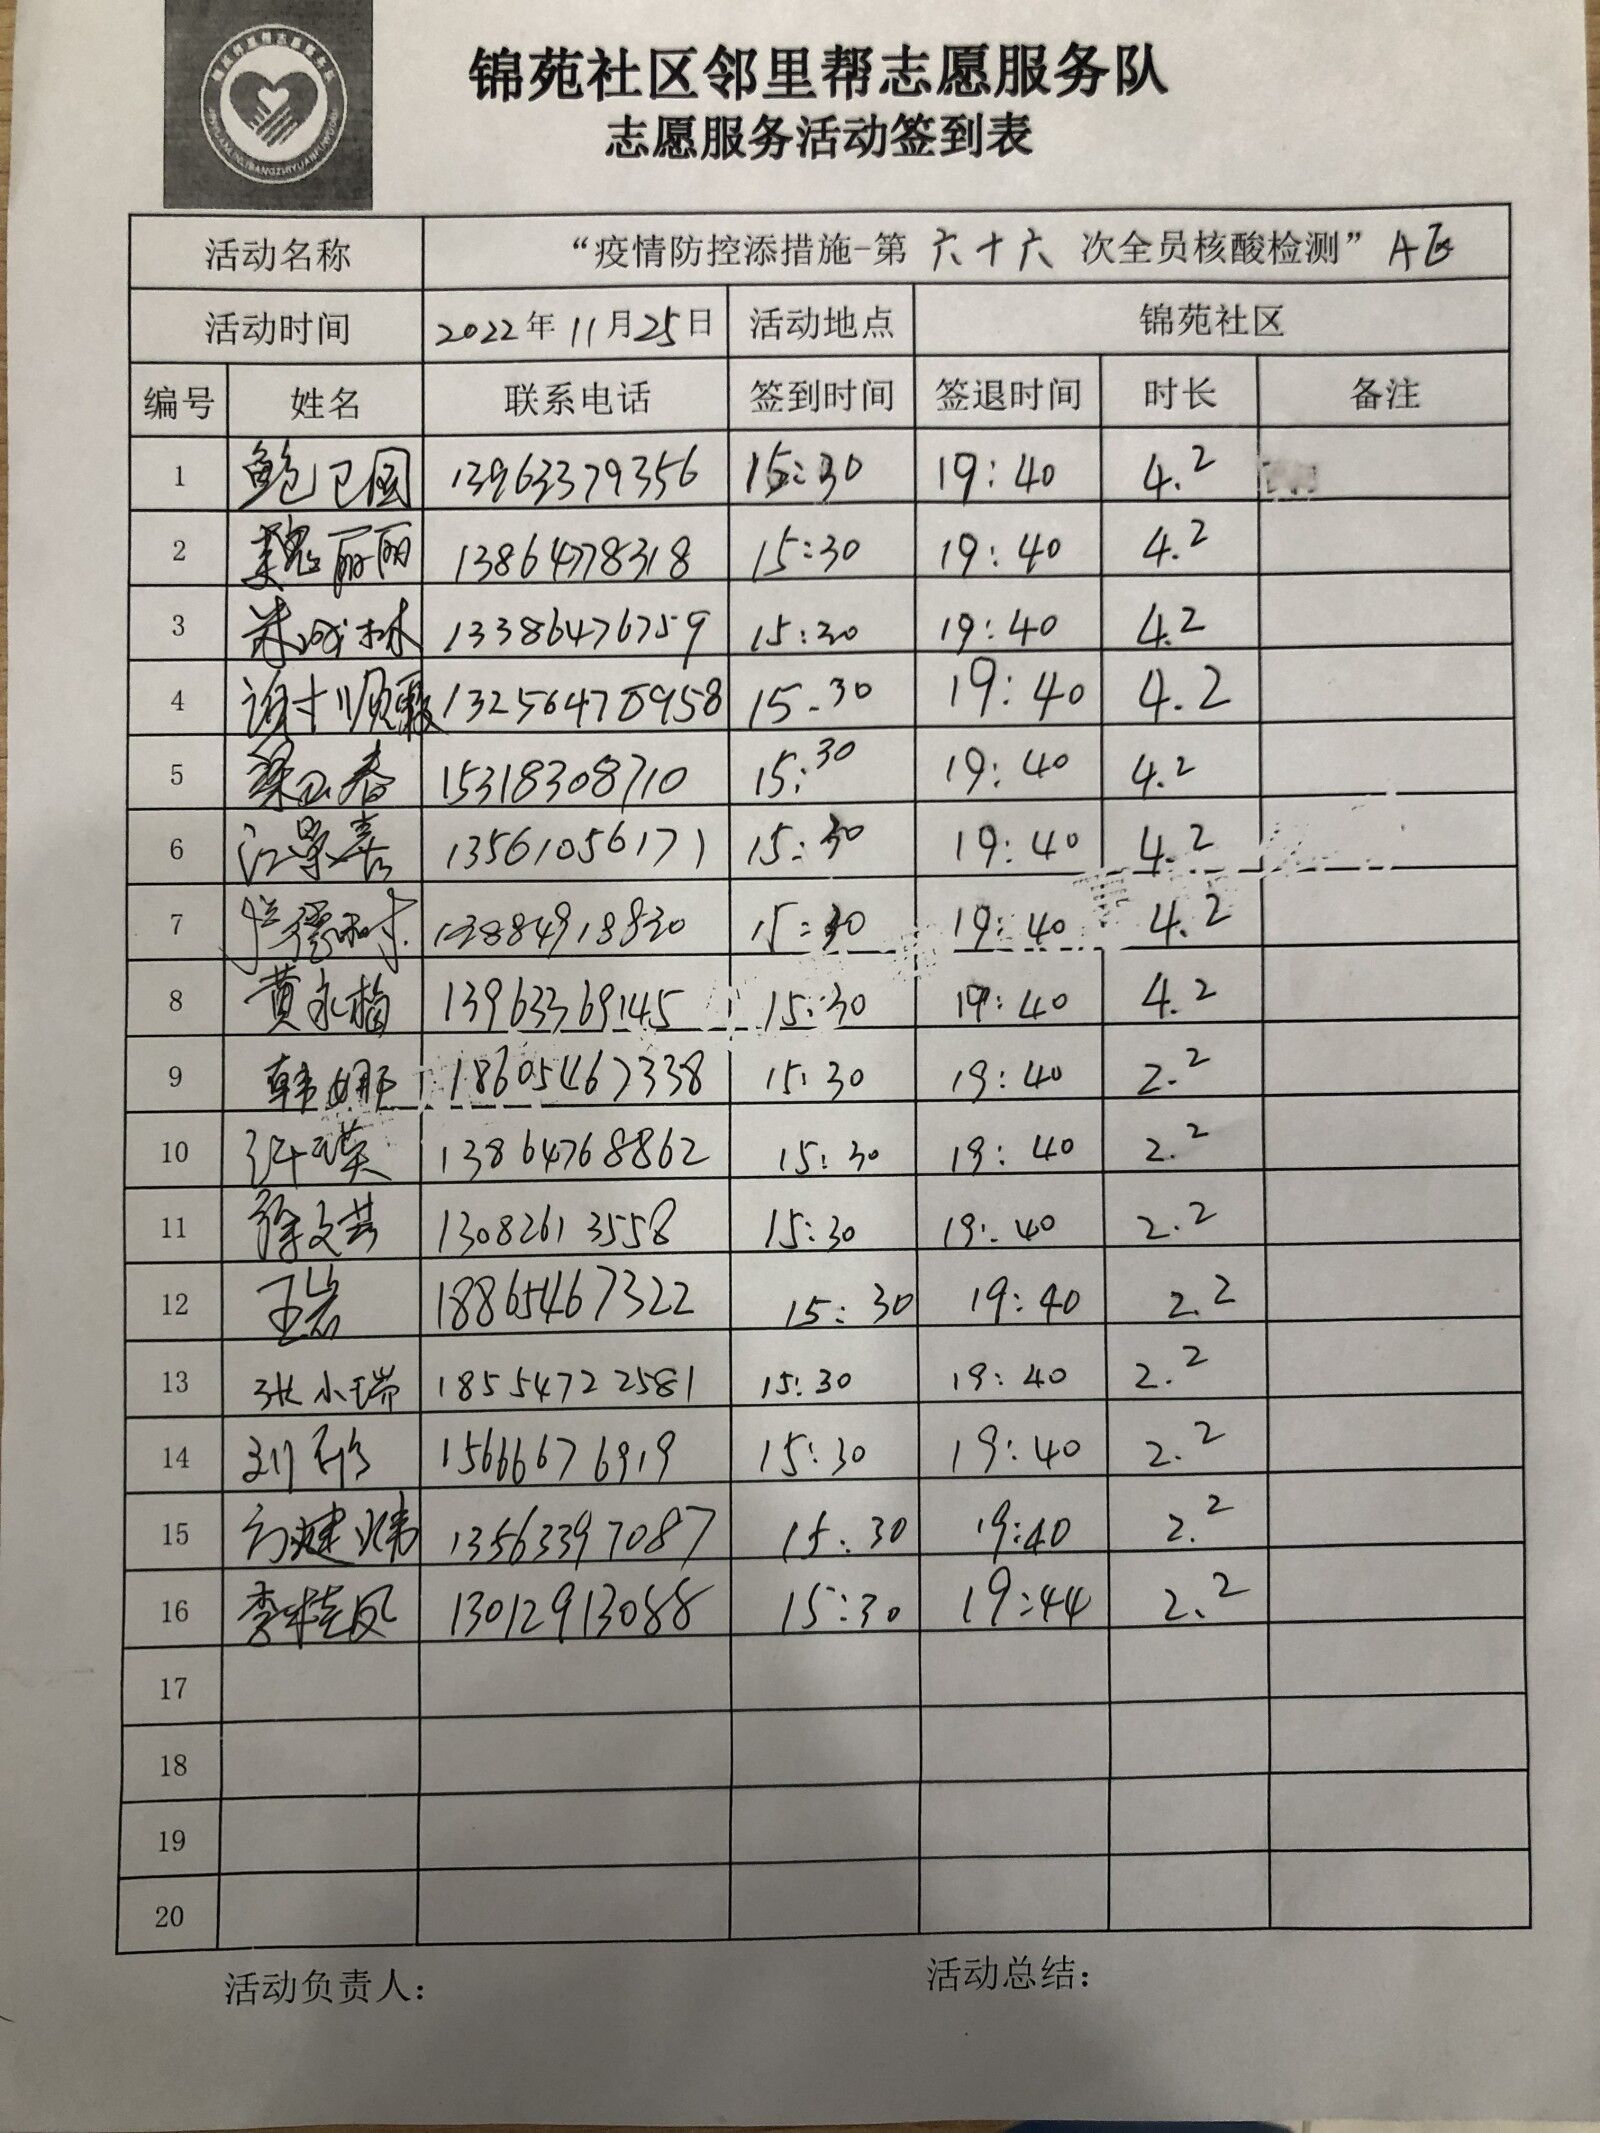 锦苑社区邻里帮志愿服务队
志愿服务活动签到表
活动名称 “疫情防控添措施-第六十六次全员核酸检测” A区
活动时间 2022年11月25日 活动地点 锦苑社区
编号 姓名 联系电话 签到时间 签退时间 时长 备注
1 鲍卫国 13963379356 15:30 19:40 4.2
2 魏丽丽 13864778318 15:30 19:40 4.2
3 13386476759 15:30 19:40 4.2
4 谢才顺 15-30 19:40 4.2
5 梁 春 15318308710 15:30 19:40 4.2
6 江景喜 13561056171 15:30 19:40 4.2
7 德树 13884918830 15:30 19:40 4.2
8 黄永梅 13963369145 15:30 19:40 4.2
9 韩娜 18605467338 15:30 19:40 2.2
10 许瑛 13864768862 15:30 19:40 2.2
11 徐文芸 13082613558 15:30 19:40 2.2
12 王岩 18865467322 15:30 19:40 2.2
13 张小瑞 18554722581 15:30 19:40 2.2
14 刘欣 15666676919 15:30 19:40 2.2
15 方建炜 13563397087 15:30 19:40 2.2
16 李桂凤 13012913088 15:30 19:44 2.2
17
18
19
20
活动负责人： 活动总结：